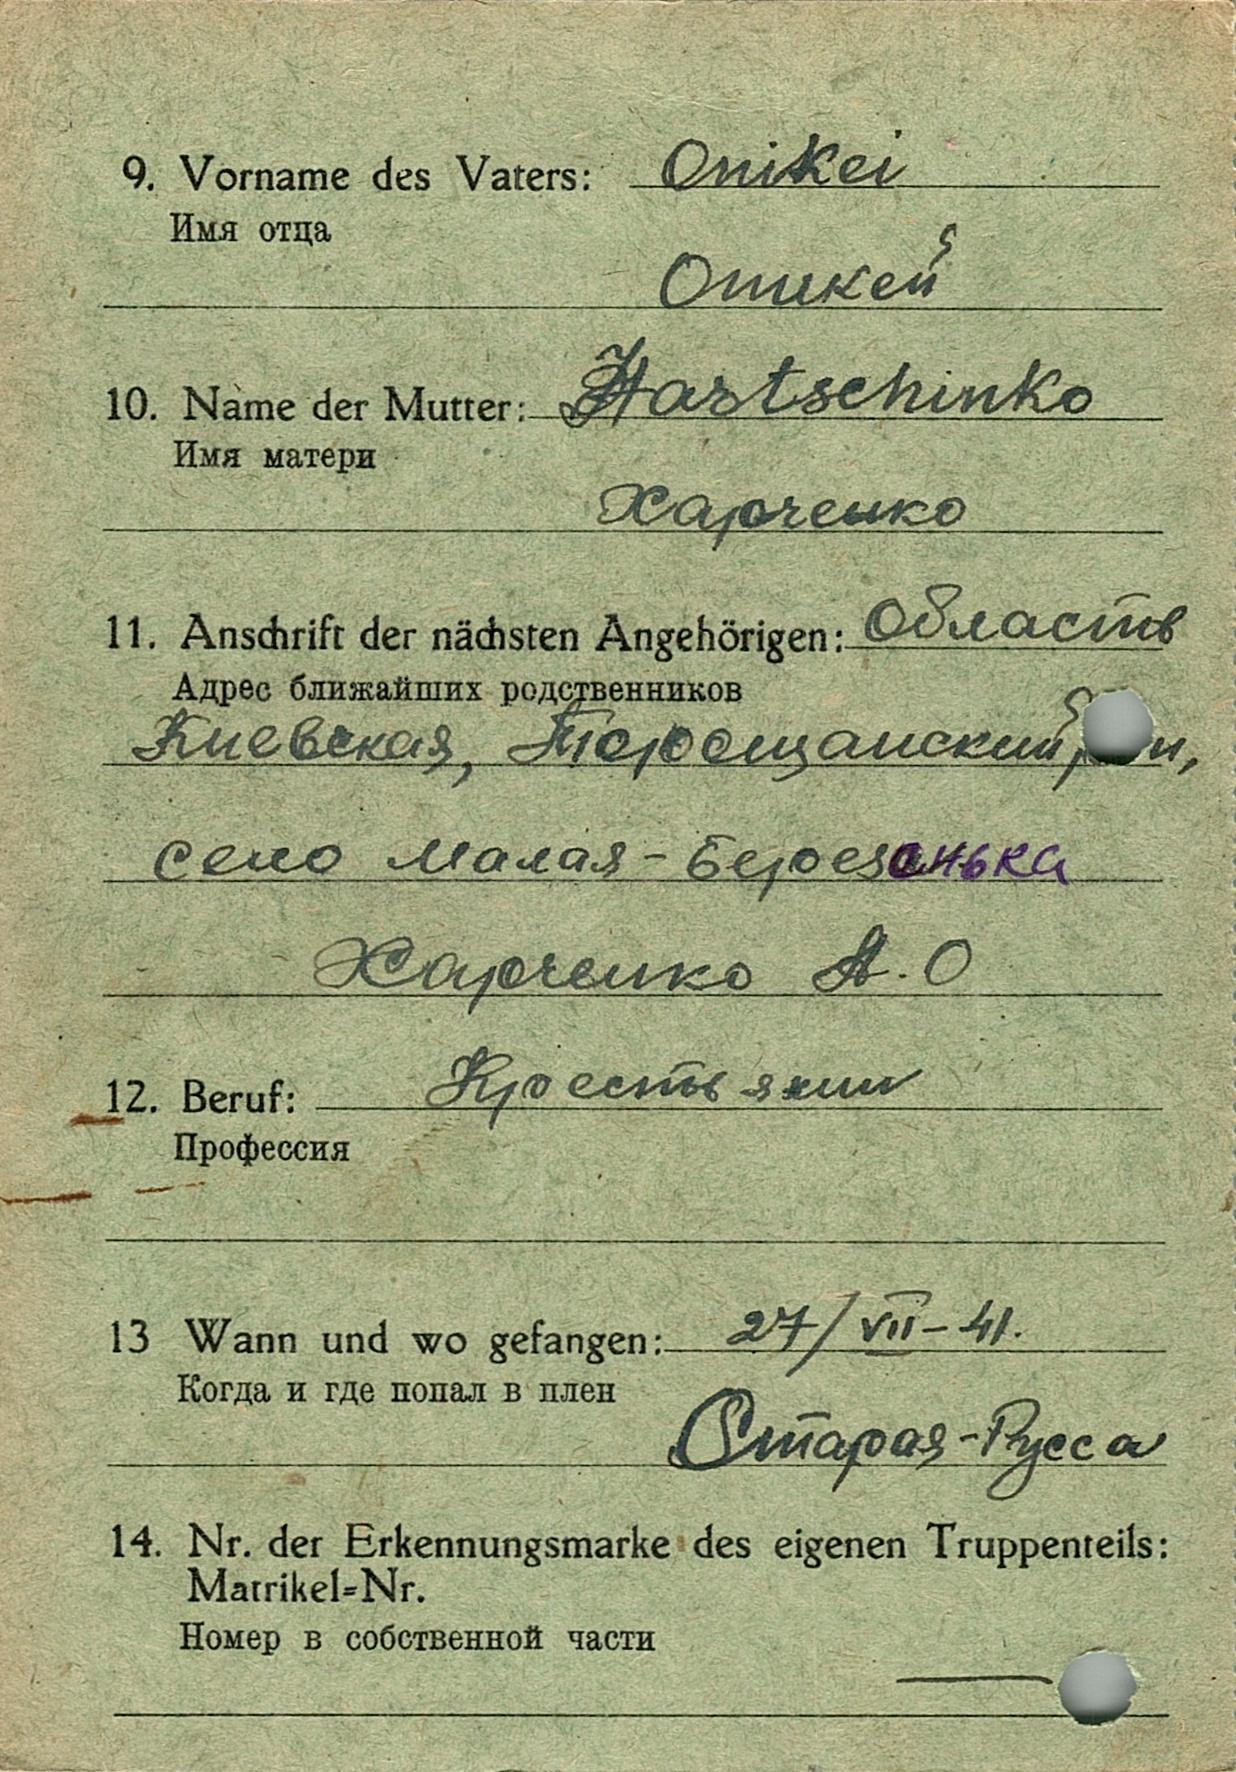 9. Vorname des Vaters: Onikei
Имя отца
Оникей
10. Name der Mutter: Hartschinko
Имя матери
Харченко
11. Anschrift der nächsten Angehörigen: Область
Адрес ближайших родственников
Киевская,
село Малая-Березанька
Харченко А.О
12. Beruf: Крестьянин
Профессия
13 Wann und wo gefangen: 27/VII-41.
Когда и где попал в плен
Старая-Русса
14. Nr. der Erkennungsmarke des eigenen Truppenteils:
Matrikel-Nr.
Номер в собственной части